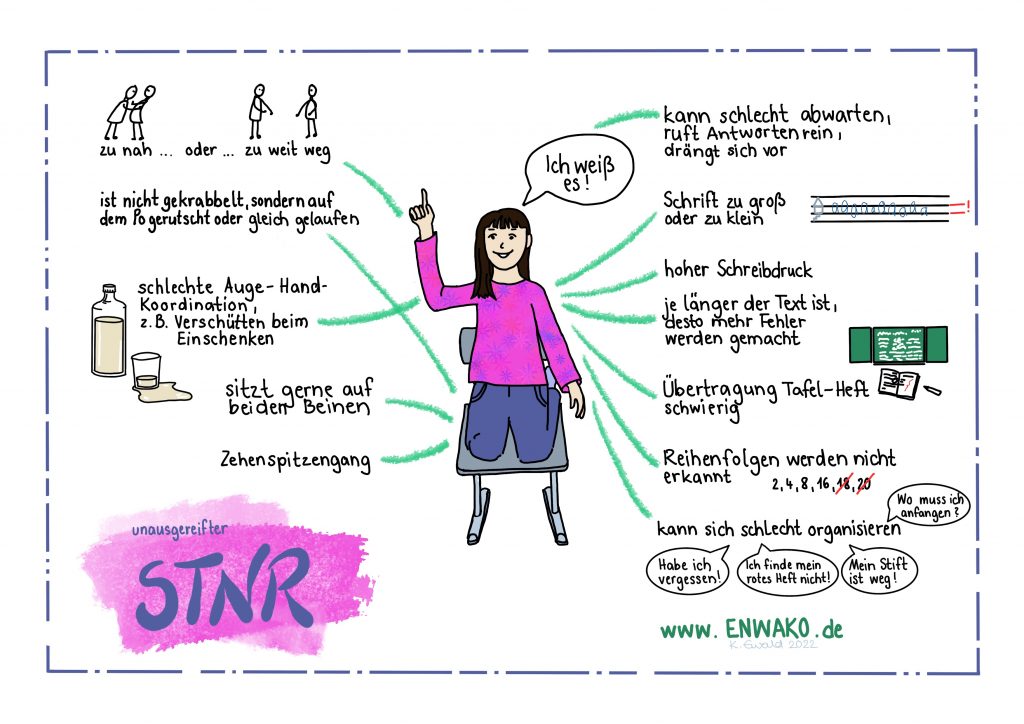 zu nah ... oder ... zu weit weg
ist nicht gekrabbelt, sondern auf
dem Po gerutscht oder gleich gelaufen
schlechte Auge-Hand-
Koordination,
z.B. Verschütten beim
Einschenken
sitzt gerne auf
beiden Beinen
Zehenspitzengang
unausgereifter
STNR
Ich weiß
es!
kann schlecht abwarten,
ruft Antworten rein,
drängt sich vor
Schrift zu groß
oder zu klein
!
hoher Schreibdruck
je länger der Text ist,
desto mehr Fehler
werden gemacht
Übertragung Tafel-Heft
schwierig
Reihenfolgen werden nicht
erkannt
2, 4, 8, 16, 18, 20
Wo muss ich
anfangen?
kann sich schlecht organisieren
Habe ich
vergessen!
Ich finde mein
rotes Heft nicht!
Mein Stift
ist weg!
www.ENWAKO.de
K. Ewald 2022